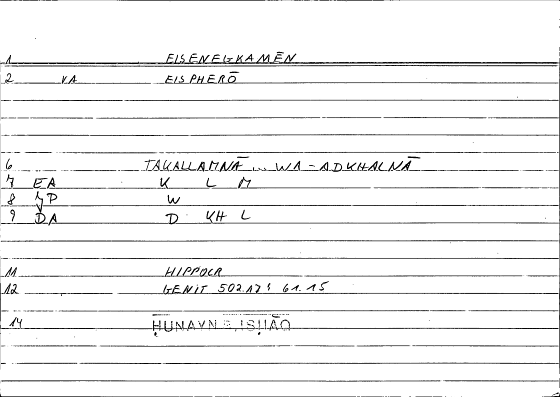 1 EISENEGKAMĒN
2 VA EISPHERŌ
6 TAKALLAMNĀ ... WA-ADKHALNĀ
7 EA K L M
8 P W
9 DA D KH L
11 HIPPOCR
12 GENIT 502.17; 61.15
14 ḤUNAYN B. ISḤĀQ